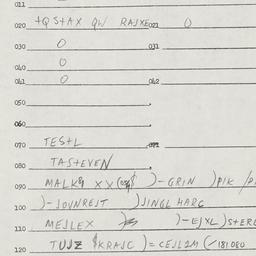 011
020 +QS+AX QW RAJXE021 0
030 0 031
040 0
041 0 042
050
060
070 TES+L 071
080 TAS+EVEN
090 MALK )-GRIN )PIK
100 )-JOVNREJT )JINGL HARC
110 MEJLEX )-EJXL)S+ER
120 TUJZ $KRAJC )=CEJL2M (/181080